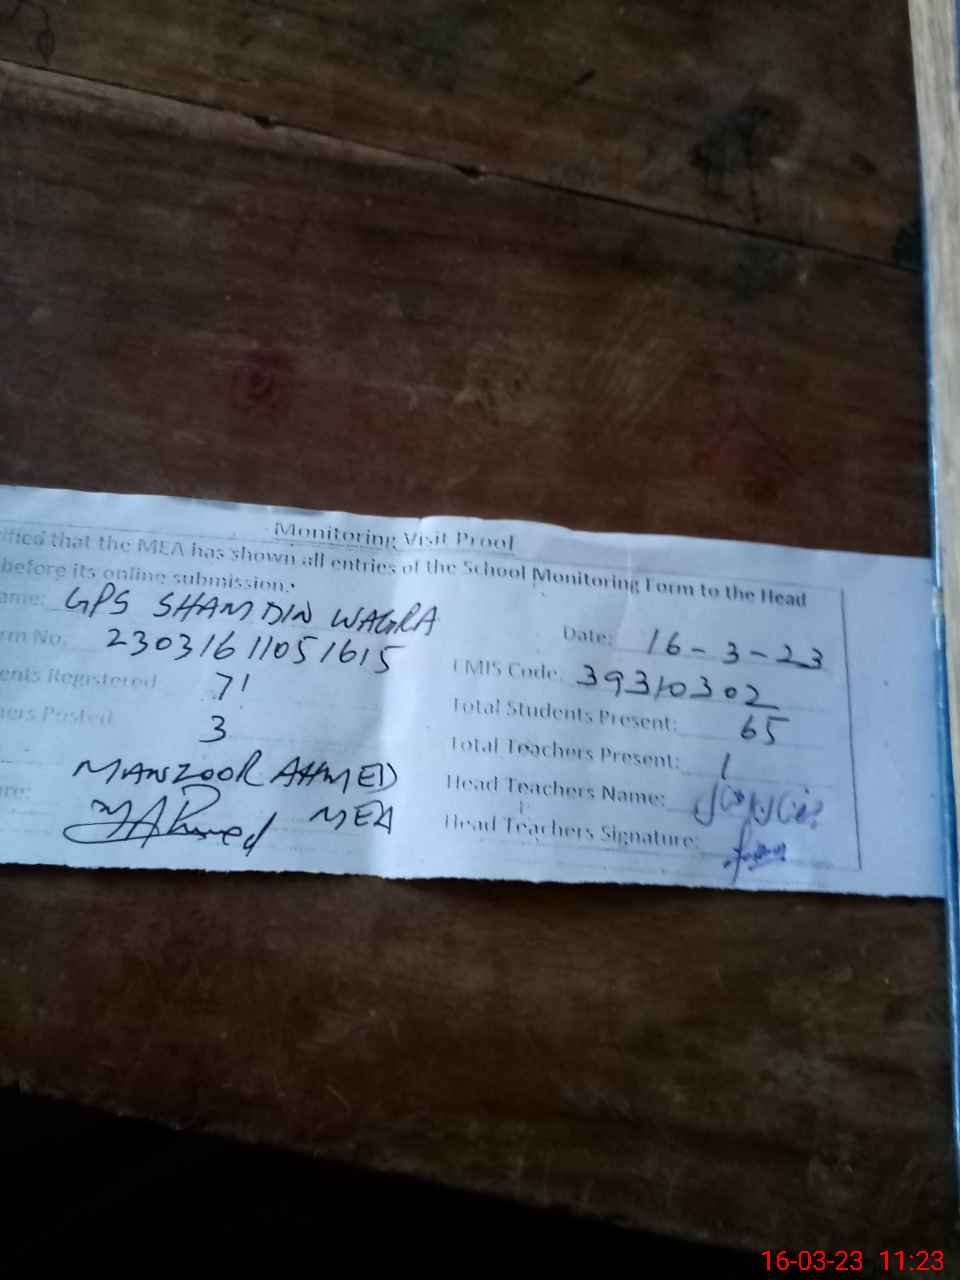 Monitoring Visit Proof
ified that the MEA has shown all entries of the School Monitoring Form to the Head
before its online submission.
ame: GPS SHAM DIN WAGRA
Date: 16-3-23
rm No. 230316 11051615
EMIS Code: 39310302
ents Registered 71
Total Students Present: 65
hers Posted 3
Total Teachers Present: 1
MANZOOR AHMED
Head Teachers Name:
re: MAhmed MEA
Head Teachers Signature:
16-03-23 11:23